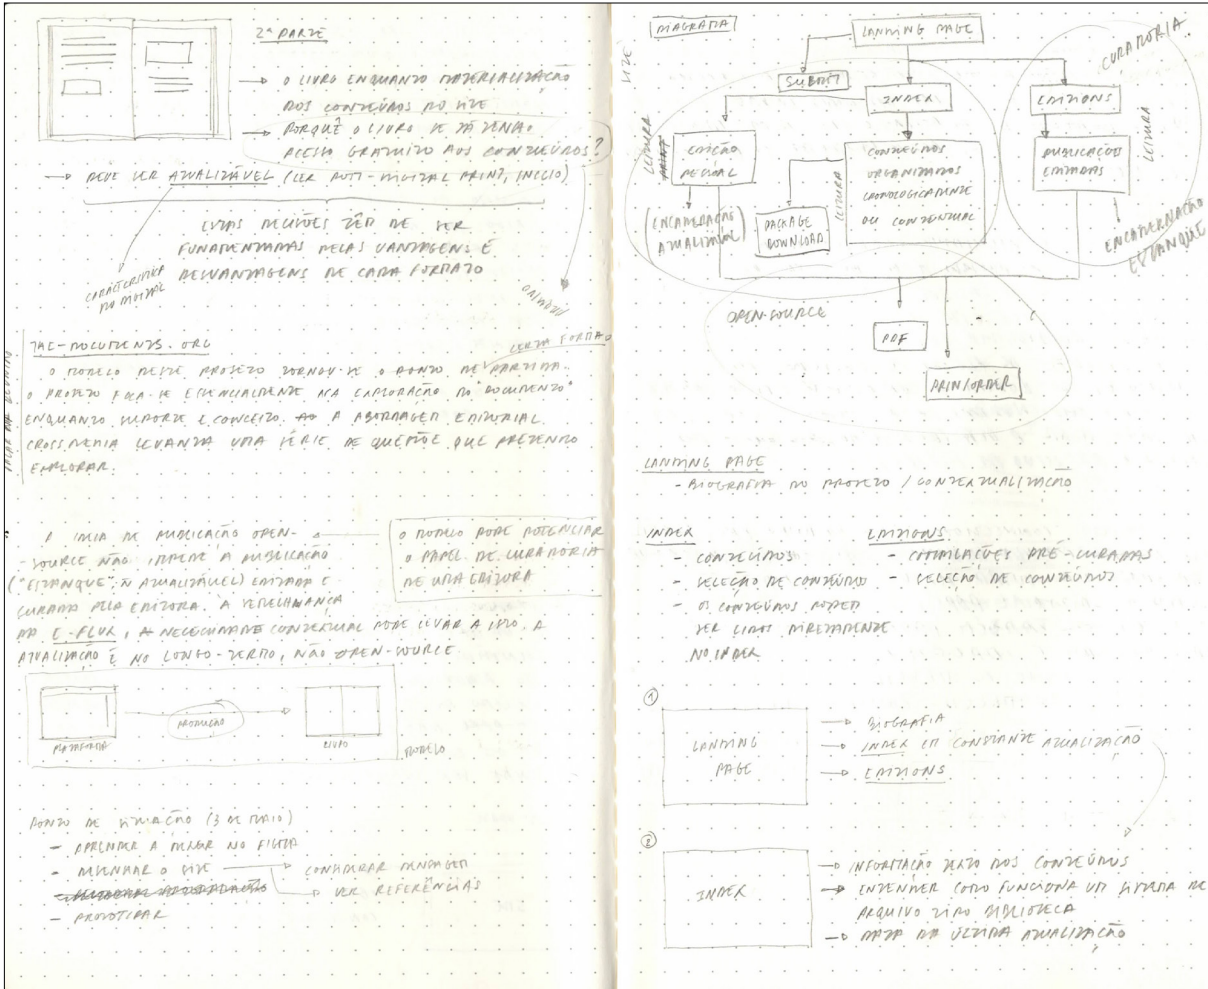 2ª PARTE
→ O LIVRO ENQUANTO MATERIALIZAÇÃO
DOS CONTEÚDOS DO SITE
→ PORQUÊ O LIVRO SE JÁ TENHO
ACESSO GRATUITO AOS CONTEÚDOS?
→ DEVE SER ATUALIZÁVEL (LER POST-DIGITAL PRINT, INÍCIO)
ESTAS DECISÕES TÊM DE SER
FUNDAMENTADAS PELAS VANTAGENS E
DESVANTAGENS DE CADA FORMATO
CARACTERÍSTICA
DO DIGITAL
CERTA FORMA
-DOCUMENTS.ORG
O MODELO DESTE PROJETO TORNOU-SE O PONTO DE PARTIDA.
O PROJETO FOCA-SE ESSENCIALMENTE NA EXPLORAÇÃO DO "DOCUMENTO"
ENQUANTO SUPORTE E CONCEITO. A ABORDAGEM EDITORIAL
CROSSMEDIA LEVANTA UMA SÉRIE DE QUE PRETENDO
EXPLORAR.
A IDEIA DE PUBLICAÇÃO OPEN-
-SOURCE NÃO IMPEDE A PUBLICAÇÃO
("ESTANQUE" Ñ ATUALIZÁVEL) EDITADA E
CURADA PELA EDITORA. À SEMELHANÇA
DA E-FLUX, A NECESSIDADE CONTEXTUAL PODE LEVAR A ISSO. A
ATUALIZAÇÃO É NO LONGO-TERMO, NÃO OPEN-SOURCE.
O MODELO PODE POTENCIAR
O PAPEL DE CURADORIA
DE UMA EDITORA
PRODUÇÃO
PLATAFORMA
LIVRO
MODELO
PONTO DE SITUAÇÃO (3 DE MAIO)
- APRENDER A MEXER NO FIGMA
- DESENHAR O SITE → CONSIDERAR
→ VER REFERÊNCIAS
- PROTOTIPAR
DIAGRAMA
LANDING PAGE
SITE
SUBMIT
INDEX
EDITIONS
CURADORIA
LEITURA
EDIÇÃO
PESSOAL
CONTEÚDOS
ORGANIZADOS
CRONOLOGICAMENTE
OU CONTEXTUAL
LEITURA
PUBLICAÇÕES
EDITADAS
LEITURA
(ENCADERNAÇÃO
ATUALIZÁVEL)
PACKAGE
DOWNLOAD
ENCADERNAÇÃO
ESTANQUE
OPEN-SOURCE
PDF
PRINT/ORDER
LANDING PAGE
- BIOGRAFIA DO PROJETO / CONTEXTUALIZAÇÃO
INDEX
- CONTEÚDOS
- SELEÇÃO DE CONTEÚDO
- OS CONTEÚDOS PODEM
SER LIDOS DIRETAMENTE
NO INDEX
EDITIONS
- COMPILAÇÕES PRÉ-CURADAS
- SELEÇÃO DE CONTEÚDOS
1
LANDING
PAGE
→ BIOGRAFIA
→ INDEX EM CONSTANTE ATUALIZAÇÃO
→ EDITIONS
2
INDEX
→ INFORMAÇÃO DOS CONTEÚDOS
→ ENTENDER COMO FUNCIONA UM SISTEMA DE
ARQUIVO TIPO BIBLIOTECA
→ DATA DA ÚLTIMA ATUALIZAÇÃO